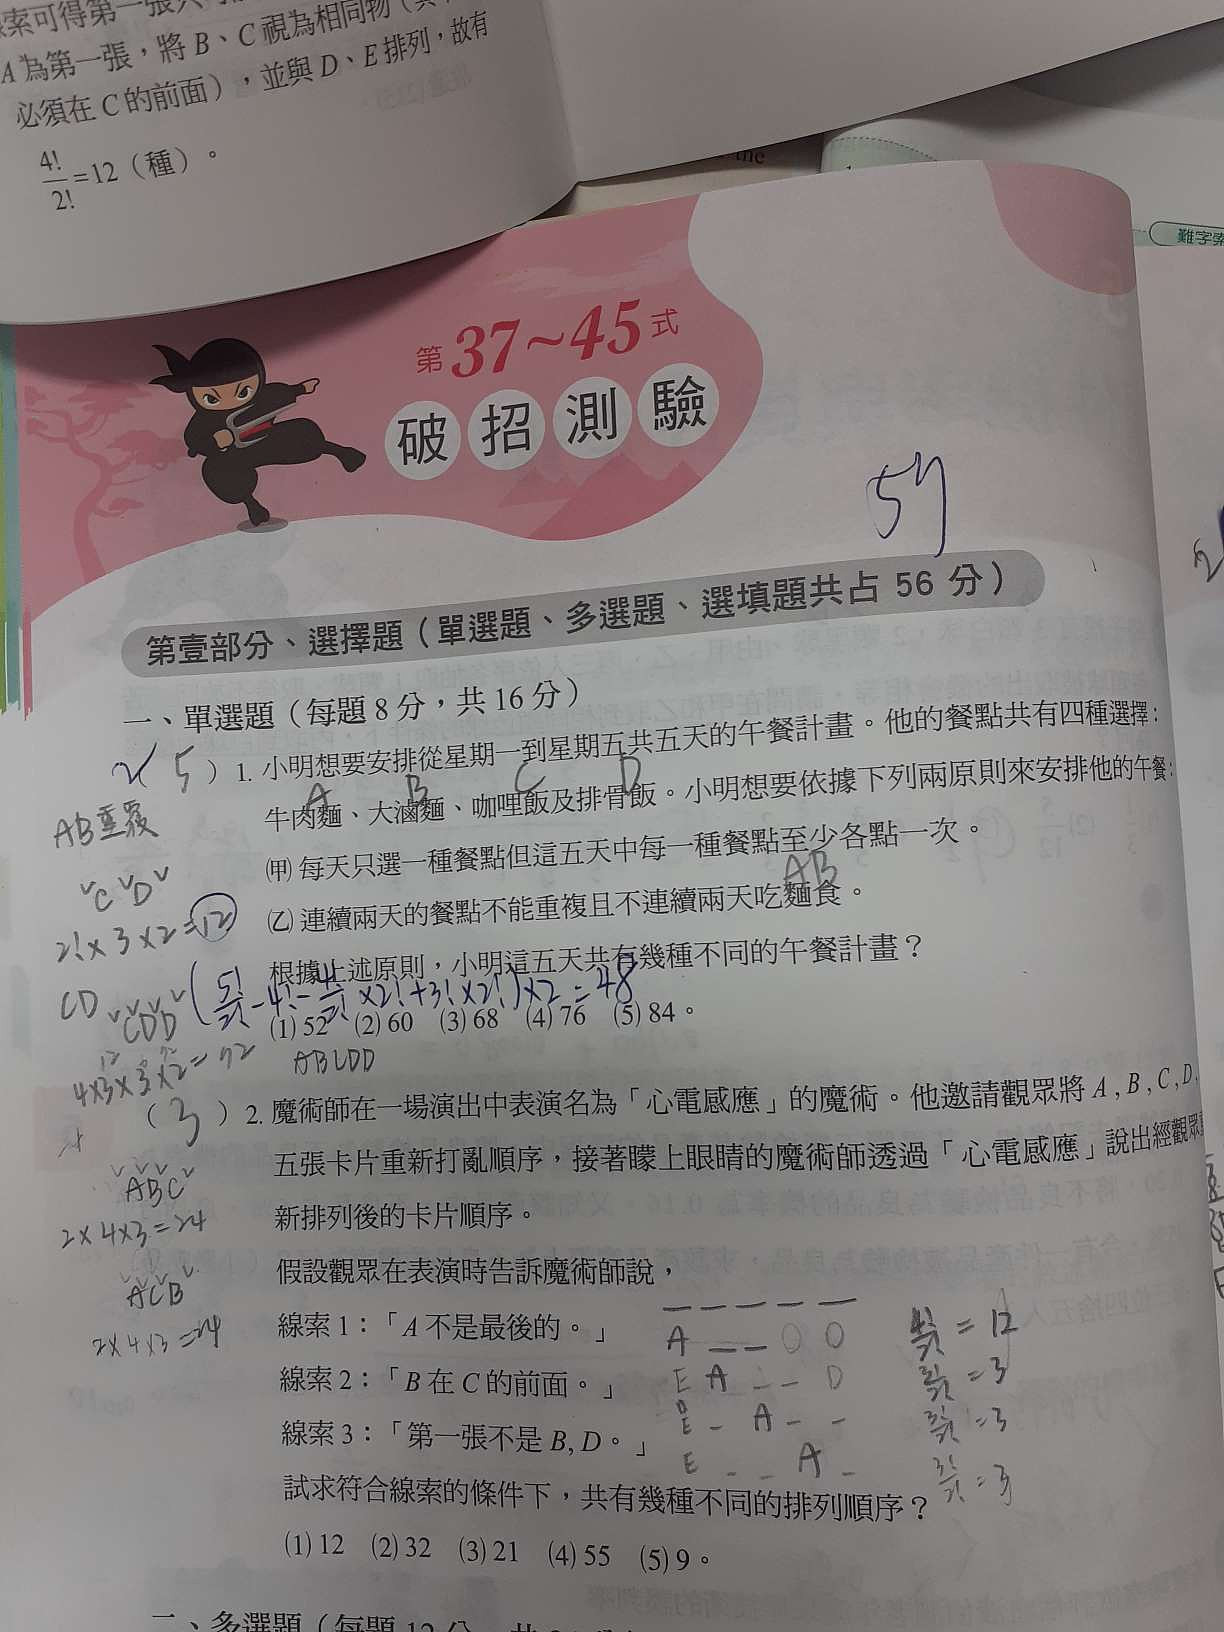 線索可得第一張只
A為第一張，將B、C視為相同物（其
必須在C的前面），並與D、E排列，故有
4!/2!=12（種）。
難字索
第37~45式
破招測驗
第壹部分、選擇題（單選題、多選題、選填題共占 56 分）
一、單選題（每題8分，共16分）
（ 5 ）1. 小明想要安排從星期一到星期五共五天的午餐計畫。他的餐點共有四種選擇：
A B C D
牛肉麵、大滷麵、咖哩飯及排骨飯。小明想要依據下列兩原則來安排他的午餐：
(甲) 每天只選一種餐點但這五天中每一種餐點至少各點一次。
AB
(乙) 連續兩天的餐點不能重複且不連續兩天吃麵食。
根據上述原則，小明這五天共有幾種不同的午餐計畫？
(1) 52 (2) 60 (3) 68 (4) 76 (5) 84。
AB重覆
ˇCˇDˇ
2!×3×2=12
CD
(5!/2!-4!-4!/2!×2!+3!×2!)×2=48
ABCDD
（ 3 ）2. 魔術師在一場演出中表演名為「心電感應」的魔術。他邀請觀眾將 A , B , C , D ,
五張卡片重新打亂順序，接著矇上眼睛的魔術師透過「心電感應」說出經觀眾
新排列後的卡片順序。
假設觀眾在表演時告訴魔術師說，
線索 1：「A 不是最後的。」
線索 2：「B 在 C 的前面。」
線索 3：「第一張不是 B, D。」
試求符合線索的條件下，共有幾種不同的排列順序？
(1) 12 (2) 32 (3) 21 (4) 55 (5) 9。
ˇAˇBˇCˇ
2×4×3=24
ˇAˇCˇBˇ
2×4×3=24
A _ _
4!/2! = 12
E A _ _
3!/2! = 3
E _ A _ _
3!/2! = 3
E _ _ A _
3!/2! = 3